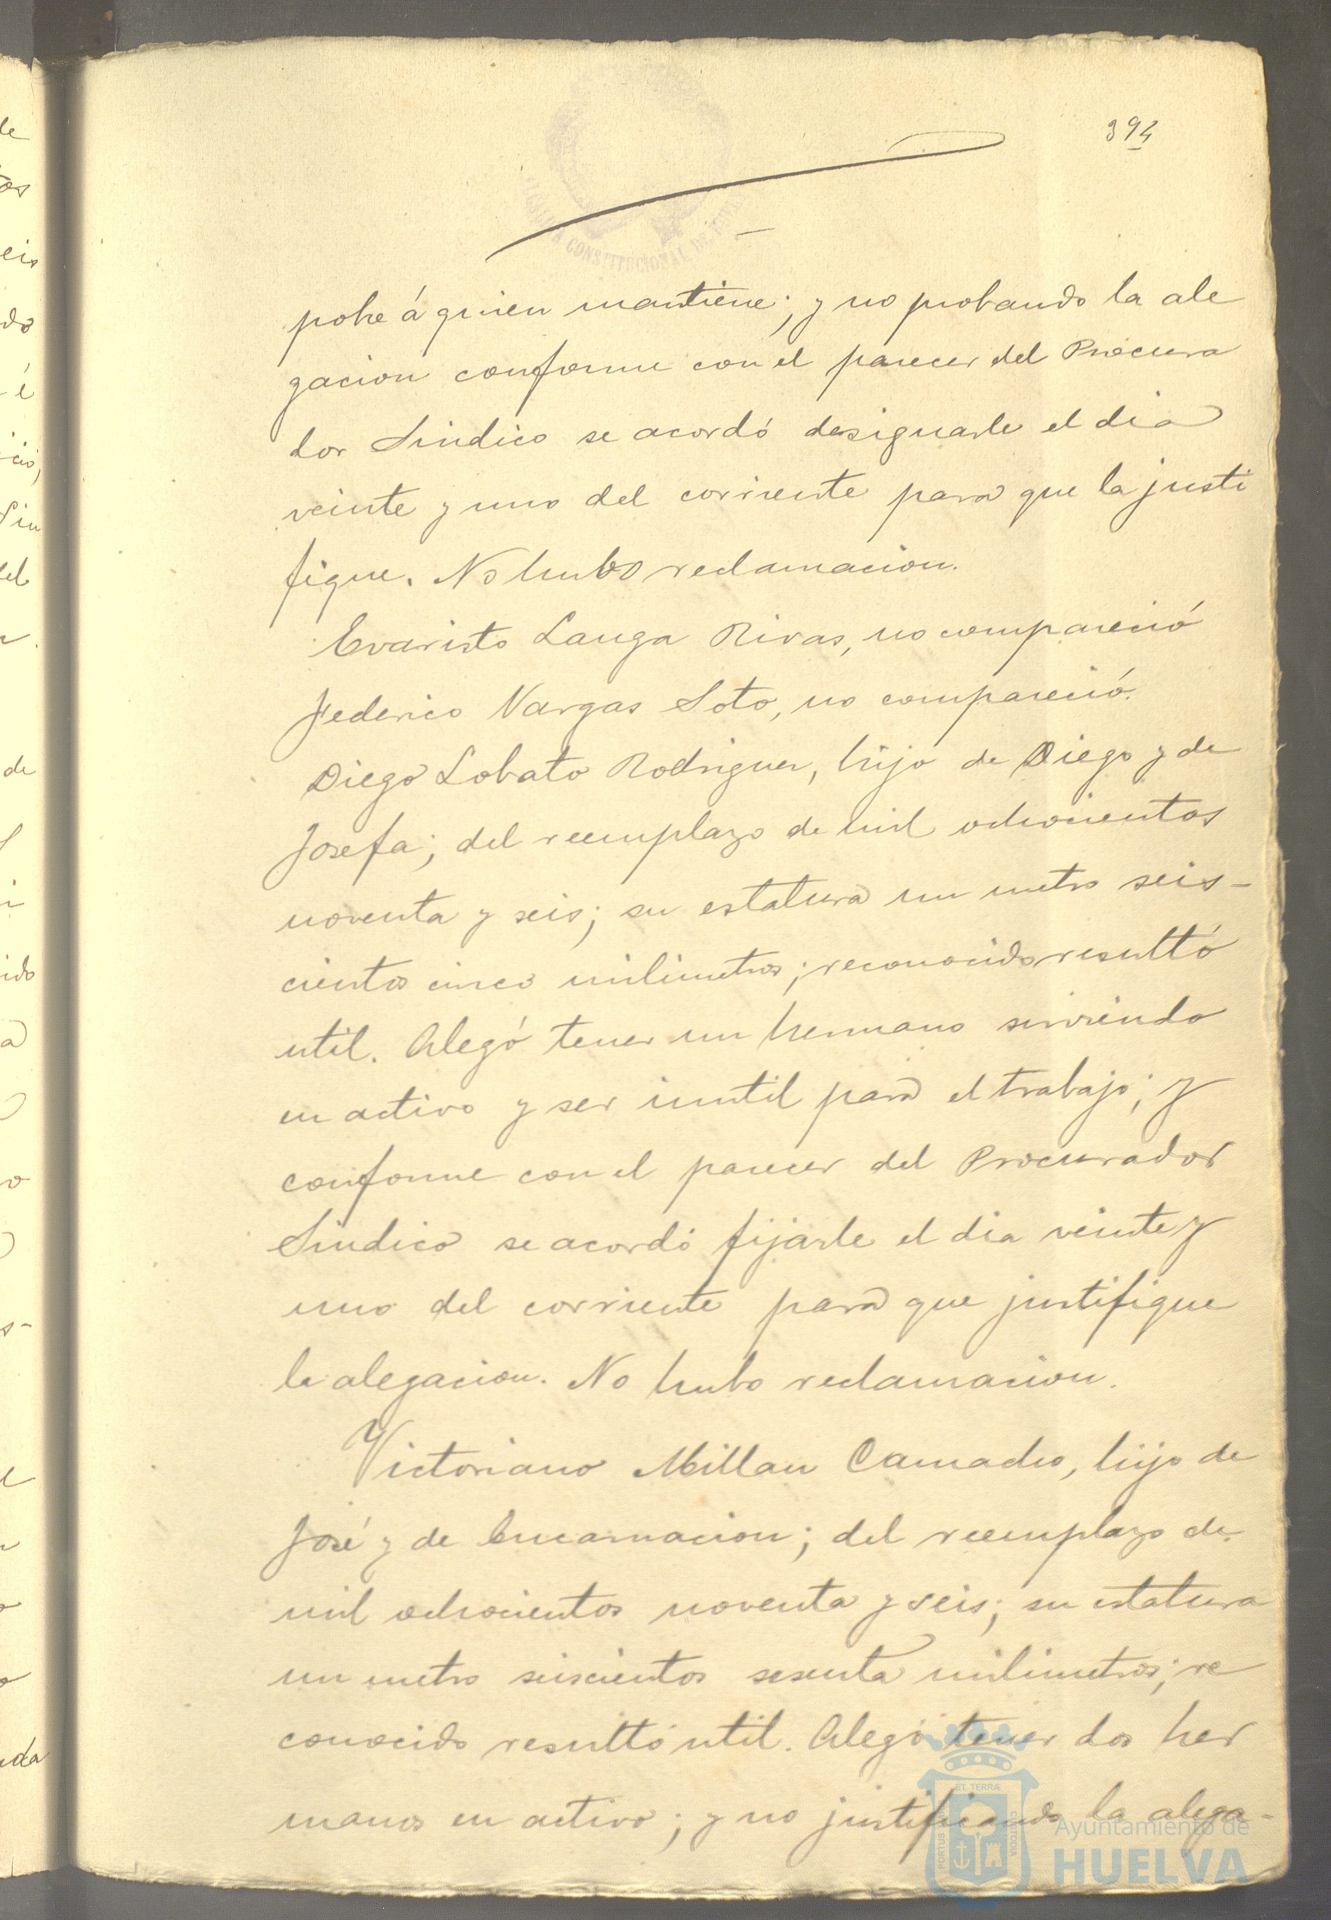 394
ALCALDIA CONSTITUCIONAL DE HUELVA
pobre á quien mantiene; y no probando la ale
gacion conforme con el parecer del Procura
dor Sindico se acordó designarle el dia
veinte y uno del corriente para que la justi
fique. No hubo reclamacion.
Evaristo Langa Rivas, no compareció
Federico Vargas Soto, no compareció.
Diego Lobato Rodriguez, hijo de Diego y de
Josefa; del reemplazo de mil ochocientos
noventa y seis; su estatura un metro seis-
cientos cinco milimetros; reconocido resultó
util. Alegó tener un hermano sirviendo
en activo y ser inutil para el trabajo; y
conforme con el parecer del Procurador
Sindico se acordó fijarle el dia veinte y
uno del corriente para que justifique
la alegacion. No hubo reclamacion.
Victoriano Millan Camacho, hijo de
José y de Encarnacion; del reemplazo de
mil ochocientos noventa y seis; su estatura
un metro seiscientos sesenta milimetros; re
conocido resultó util. Alegó tener dos her
manos en activo; y no justificando la alega-
Ayuntamiento de
HUELVA